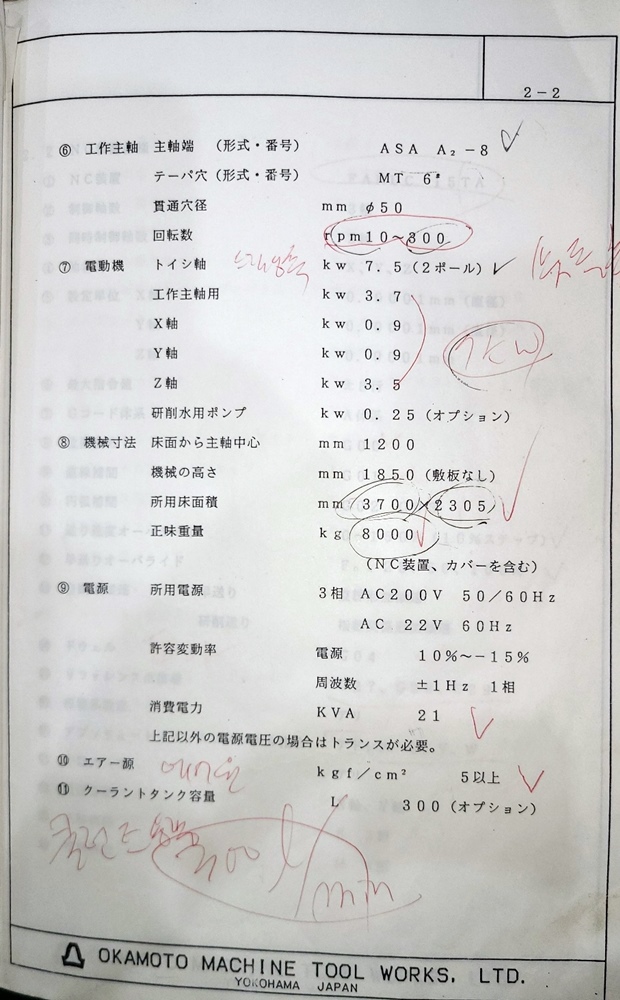 2-2
⑥ 工作主軸 主軸端 (形式・番号) ASA A₂-8
テーパ穴 (形式・番号) MT 6#
貫通穴径 mm φ50
回転数 rpm10~300
⑦ 電動機 トイシ軸 kw 7.5 (2ポール)
工作主軸用 kw 3.7
X軸 kw 0.9
Y軸 kw 0.9
7KW
Z軸 kw 3.5
研削水用ポンプ kw 0.25 (オプション)
⑧ 機械寸法 床面から主軸中心 mm 1200
機械の高さ mm 1850 (敷板なし)
所用床面積 mm 3700×2305
正味重量 kg 8000
(NC装置、カバーを含む)
⑨ 電源 所用電源 3相 AC200V 50/60Hz
AC 22V 60Hz
許容変動率 電源 10%~-15%
周波数 ±1Hz 1相
消費電力 KVA 21
上記以外の電源電圧の場合はトランスが必要。
⑩ エアー源 kgf/cm² 5以上
⑪ クーラントタンク容量 L 300 (オプション)
l/min
OKAMOTO MACHINE TOOL WORKS, LTD.
YOKOHAMA JAPAN